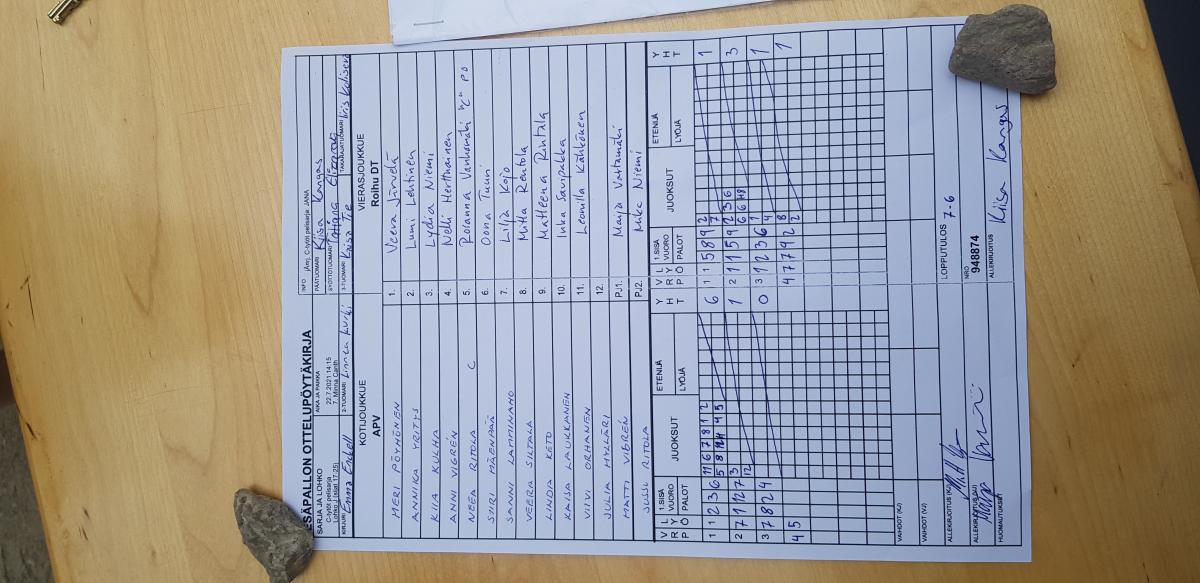 ESÄPALLON OTTELUPÖYTÄKIRJA
SARJA JA LOHKO
C-tytöt pelisarja
Lohko J (pelat 17-25)
AIKA JA PAIKKA
22.7.2021 14:15
7. Minna Canth
INFO
(Am), C-tytöt pelisarja JANA
PÄÄTUOMARI Kiisa Kangas
SYÖTTÖTUOMARI
KIRJURI Enna Eskell
2-TUOMARI Linnea Kurki
3-TUOMARI Kaisa Tie
TAKARAJATUOMARI Iiris Kolisera
KOTIJOUKKUE
APV
VIERASJOUKKUE
Roihu DT
MERI PÖYHÖNEN 1. Veera Järvelä
ANNIKA YRITYS 2. Lumi Lehtinen
KIIA KULHA 3. Lydia Niemi
ANNI VIGRÉN 4. Nelli Hertteinen
NEEA RITOLA C 5. Roosanna Vanhamäki "C" PO
SIIRI MÄENPÄÄ 6. Oona Tuuri
SANNI LAMMINAHO 7. Lilja Kojo
VEERA SILTALA 8. Milla Rentola
LINDA KETO 9. Matleena Rintala
KAISA LAUKKANEN 10. Inka Savipakka
VIIVI ORHANEN 11. Leonilla Kähkönen
JULIA MYLLÄRI 12.
MATTI VIGRÉN PJ1. Maija Vastamäki
JUSSI RITOLA PJ2. Mika Niemi
V R T L Y P 1.SISÄ VUORO PALOT JUOKSUT ETENIJÄ LYÖJÄ Y H T V R T L Y P Ö 1.SISÄ VUORO PALOT JUOKSUT ETENIJÄ LYÖJÄ Y H T
1 1 2 3 6 11 6 7 8 1 2 6 1 1 5 8 9 2 1
5 8 12 11 4 5 7
2 7 11 12 7 3 1 2 11 5 9 2 3 6 3
3 7 8 2 4 12 0 3 1 2 3 6 1 1
4
4 5 4 7 7 9 2 8 1
2
VAIHDOT (KJ)
VAIHDOT (VJ)
LOPPUTULOS 7-6
ALLEKIRJOITUS (KJ)
ALLEKIRJOITUS (VJ)
NRO
948874
ALLEKIRJOITUS
Kiisa Kangas
HUOMAUTUKSET